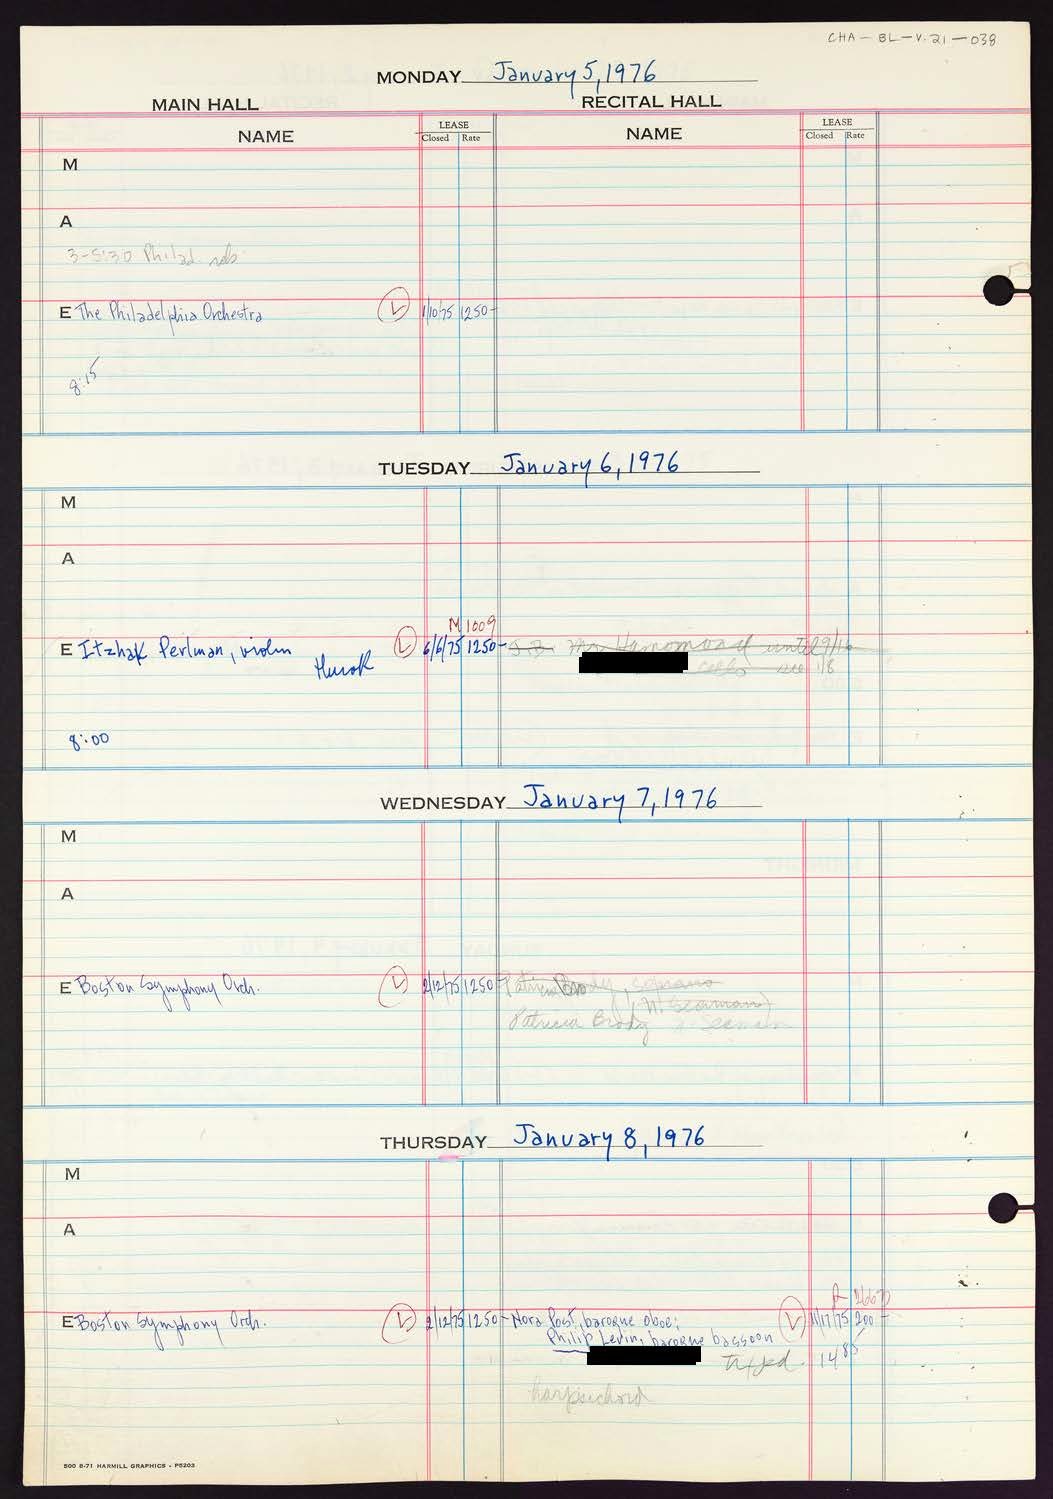 CHA-BL-V.21-038
MONDAY January 5, 1976
MAIN HALL RECITAL HALL
NAME LEASE Closed Rate NAME LEASE Closed Rate
M
A
3-5:30 Philad. reh
E The Philadelphia Orchestra L 1/10/75 1250-
8:15
TUESDAY January 6, 1976
M
A
M 1009
E Itzhak Perlman, violin L 6/6/75 1250- until 9/16
Hurok cello see 1/8
8:00
WEDNESDAY January 7, 1976
M
A
E Boston Symphony Orch. L 2/12/75 1250 Patricia Brody, soprano
(N. Seaman)
Patricia Brody N. Seaman
THURSDAY January 8, 1976
M
A
R 2667
E Boston Symphony Orch. L 2/12/75 1250- Nora Post, baroque oboe; L 11/17/75 200-
Philip Levin, baroque bassoon
1485
harpsichord
500 8-71 HARMILL GRAPHICS - P5203